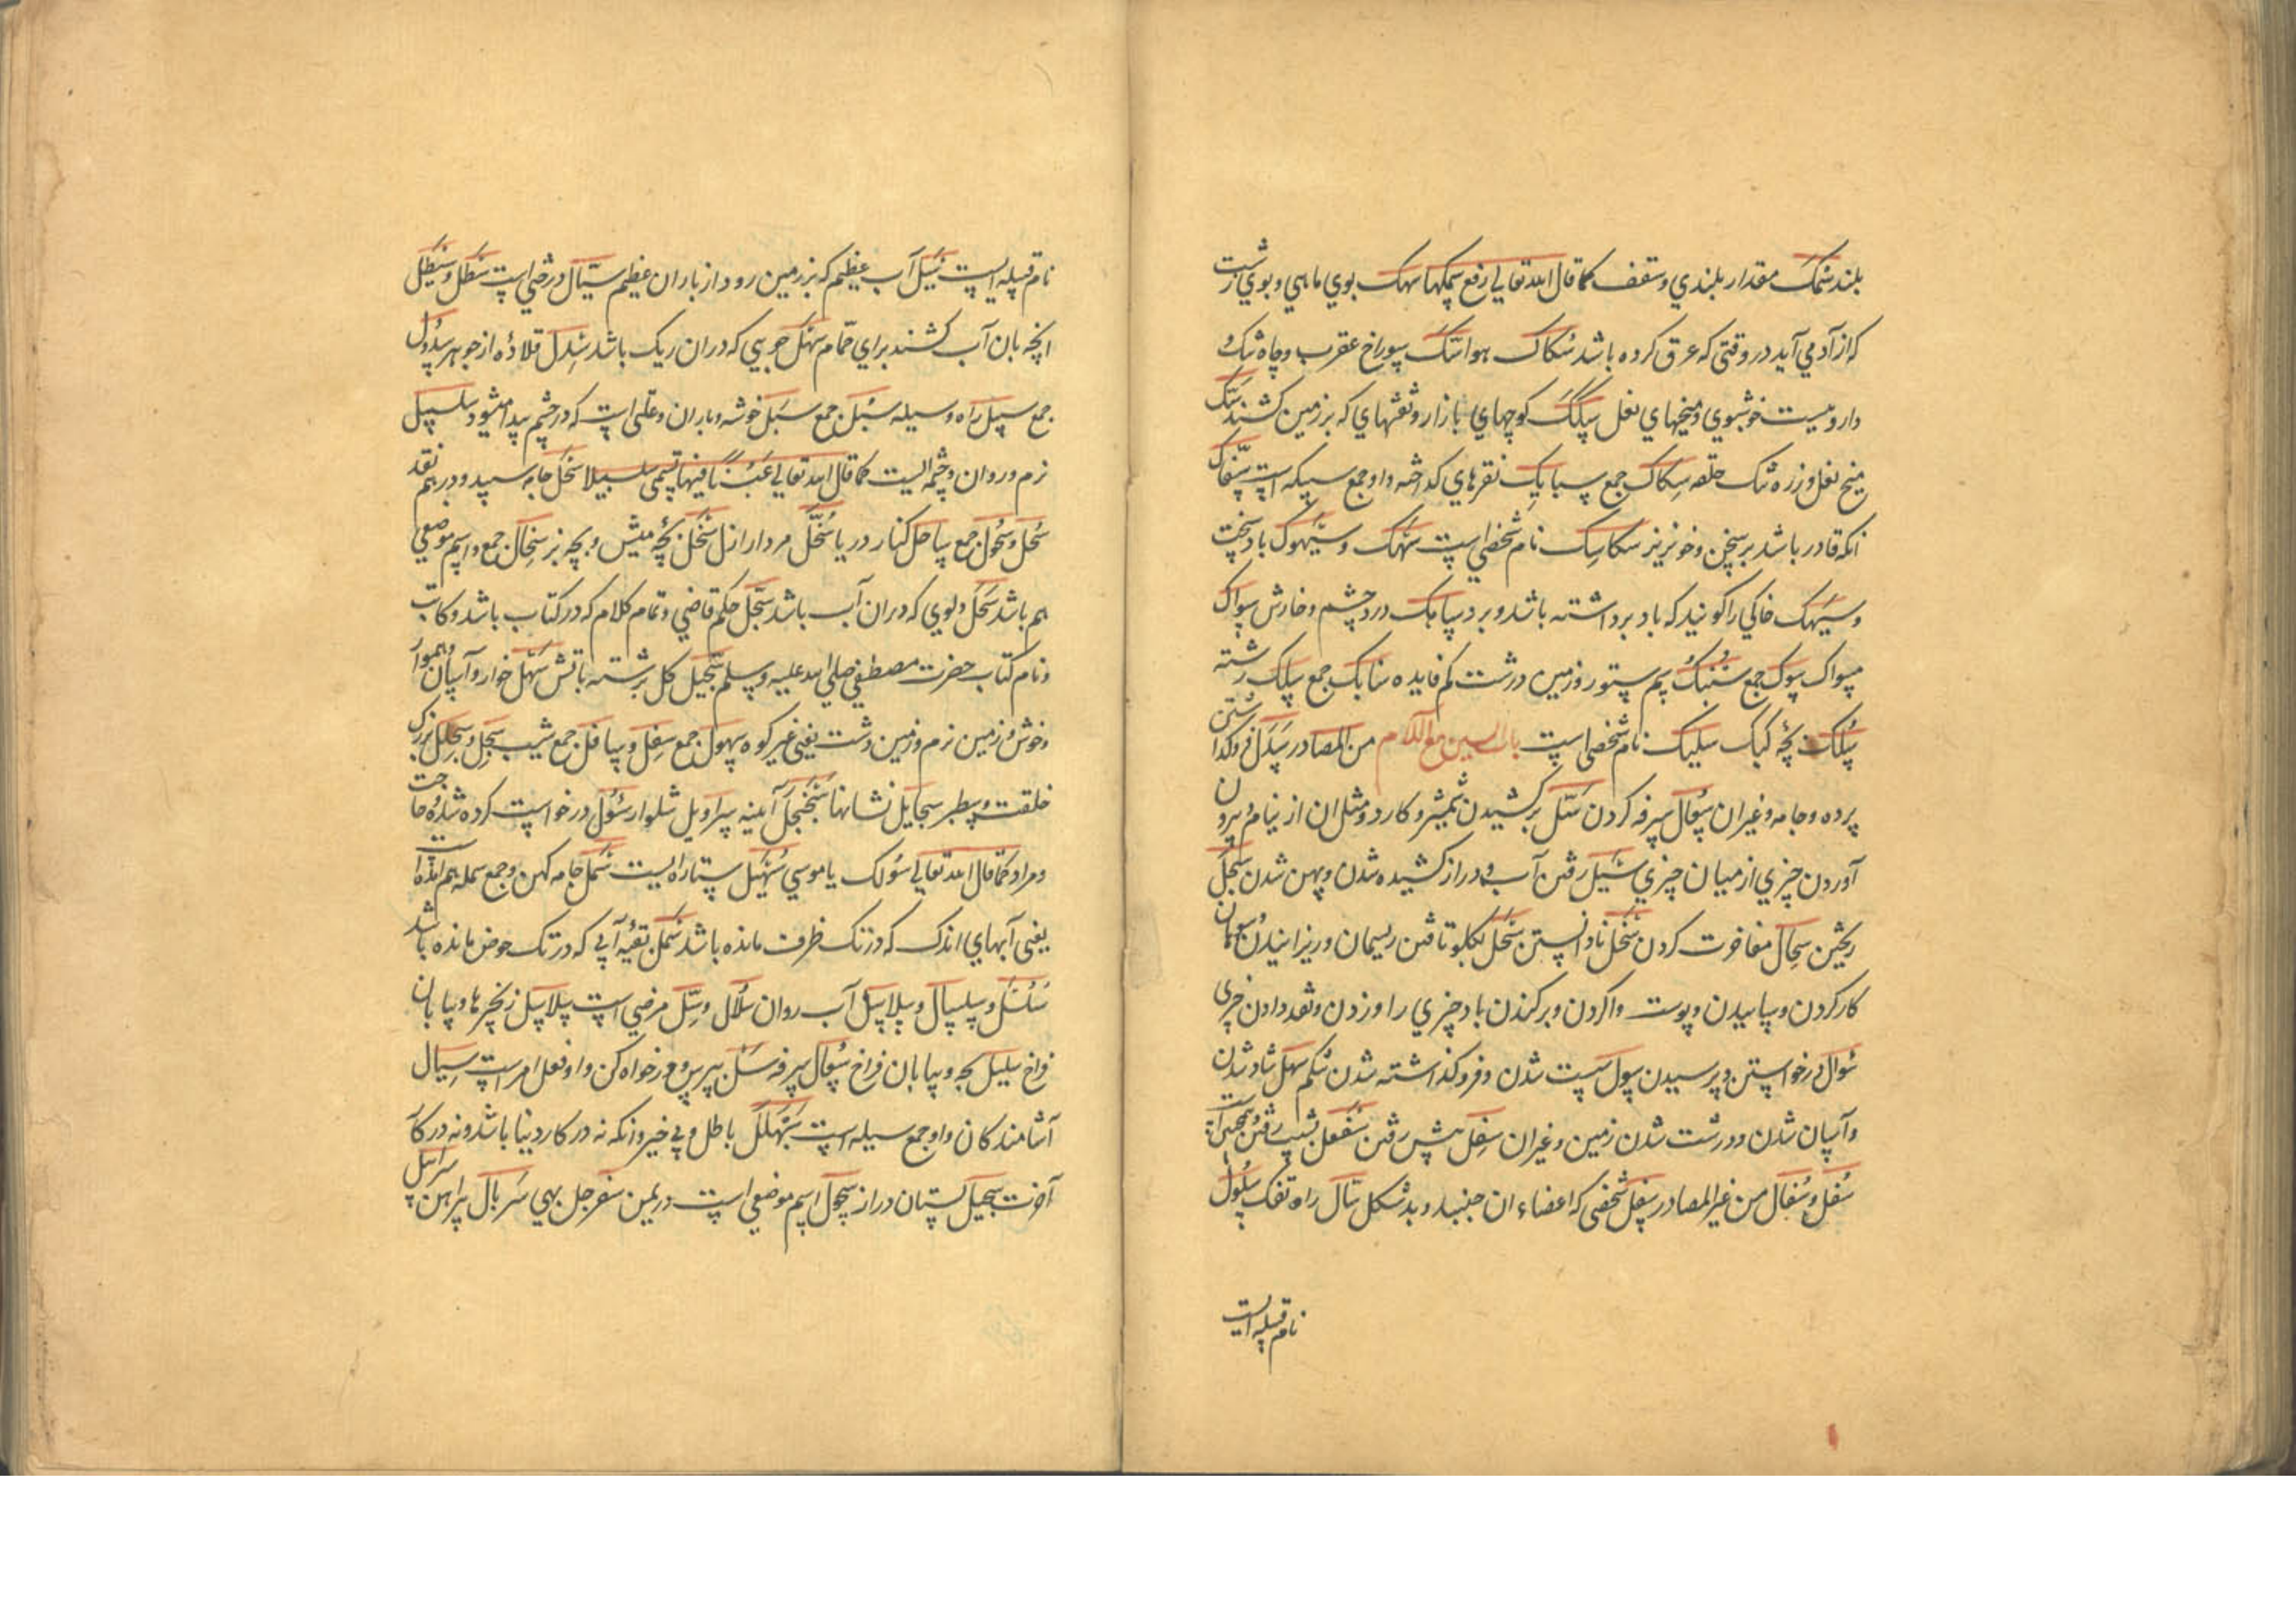 بلند سَمْک مقدار بلندي و سقف کما قال الله تعالي رفع سمکها سهک بوي ماهي و بوي زشت
که از آدمي آيد در وقتي که عرق کرده باشد سُکاک هوا سَکّ سوراخ عقرب و چاه تنک و
دارويست خوشبوي و ميخهاي نعل سِکَک کوچهاي بازار و نقشهاي که بر زمين کشند سَکّ
ميخ نعل و زره تنک حلقه سِکاک جمع سبايک نقرهاي کداخته و او جمع سبيکه است سَفّاک
انکه قادر باشد بر سخن و خونريز سکاسک نام شخصي است سَهَک و سَيْهوک باد سخت
و سَيْهک خاکي را کويند که باد برداشته باشد و برد ساهک درد چشم و خارش سِواک
مسواک سوک جمع سُنْبُک سم ستور و زمين درشت کم فايده سنابک جمع سِلک رشته
سُلَک بچهٔ کبک سليک نام شخصي است باب السين مع اللام من المصادر سَدل فروکذاشتن
پرده و جامه و غير ان سُعال سرفه کردن سَلّ برکشيدن شمشير و کارد و مثل ان از نيام و بيرون
آوردن چيزي از ميان چيزي سَيْل رفتن آب و دراز کشيده شدن و پهن شدن سَجْل
ريختن سِجال مفاخرت کردن سَحْل نادانستن سَحْل يکلو تافتن ريسمان و ريزانيدن سوهان
کار کردن و ساييدن و پوست واکردن و برکندن باد چيزي را و زدن و نقد دادن چيزي
سُوال درخواستن و پرسيدن سول سست شدن و فروکذاشته شدن شکم سهل شاد شدن
و آسان شدن و درشت شدن زمين و غير ان سفل پيش رفتن
سُفل و سُفال من غير المصادر سغل شخصي که اعضاء ان جنبد و بدشکل سَال راه تنک سَلول
نام قبيله ايست
نام قبيله ايست سَيْل آب عظيم که بر زمين رود از باران عظيم سَيّال درختي است سَطْل و سَيْطل
انچه بان آب کشند براي حمّام سَهْل جويي که دران ريک باشد سِدل قلادهٔ از جوهر سُدول
جمع سبيل راه و وسيله سُبُل جمع سَبَل خوشه و باران و علتي است که در چشم پيدا ميشود سلسبيل
نرم و روان و چشمه ايست کما قال الله تعالي عَيْنًا فيها تسمّي سلسبيلا سَحْل جامه سپيد و درهم نقد
سُحل و سُحول جمع ساحل کنار دريا سُخَّل مردار ازل سَخْل بچهٔ ميش و بچه بز سِخال جمع و اسم موضعي
هم باشد سَجْل دلوي که دران آب باشد سِجِلّ حکم قاضي و تمام کلام که در کتاب باشد و کاتب
و نام کتاب حضرت مصطفي صلي الله عليه و سلم سِجّيل کل برشته باتش سَهْل خوار و آسان و هموار
و خوش و زمين نرم و زمين دشت يعني غير کوه سهول جمع سِفل و سافل جمع شيب سَحْبَل و سَحْلَل بزرک
خلقت و سطبر سجايل نشانها سَجَنْجَل آينه سراويل شلوار سُؤل درخواست کرده شده و حاجت
و مراد کما قال الله تعالي سُؤلک يا موسي سُهَيْل ستاره ايست سَمَل جامه کهن و جمع سمله هم آمده است
يعني آبهاي اندک که در تک ظرف مانده باشد سَمَل بقيهٔ آبي که در تک حوض مانده باشد
سَلْسَل و سلسال و سلاسل آب روان سُلال و سِلّ مرضي است سلاسل زنجيرها و بيابان
فراخ سليل بچه و بيابان فراخ سُعال سرفه سَلْ بپرس و درخواه کن و او فعل امر است سِيال
آشامندکان و او جمع سيله است سَبَهْلَل باطل و بي خير و انکه نه در کار دنيا باشد و نه در کار
آخرت سجيل پستان دراز سحول اسم موضعي است در يمن سفرجل بهي سَربال پيراهن سرابيل